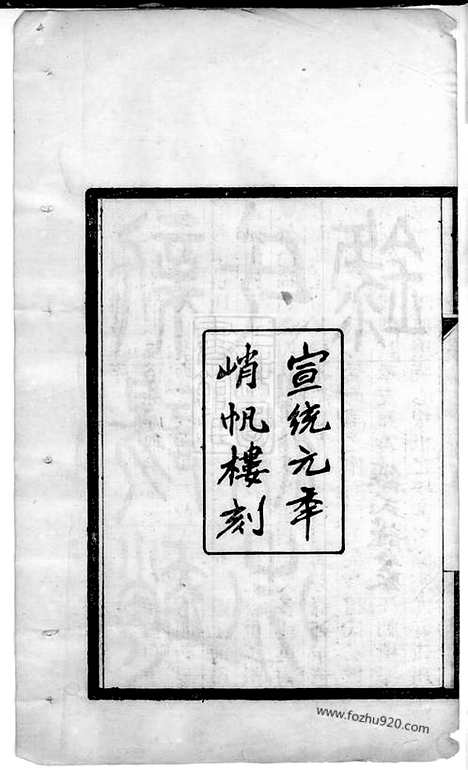 宣統元年
峭帆樓刻
www.fozhu920.com